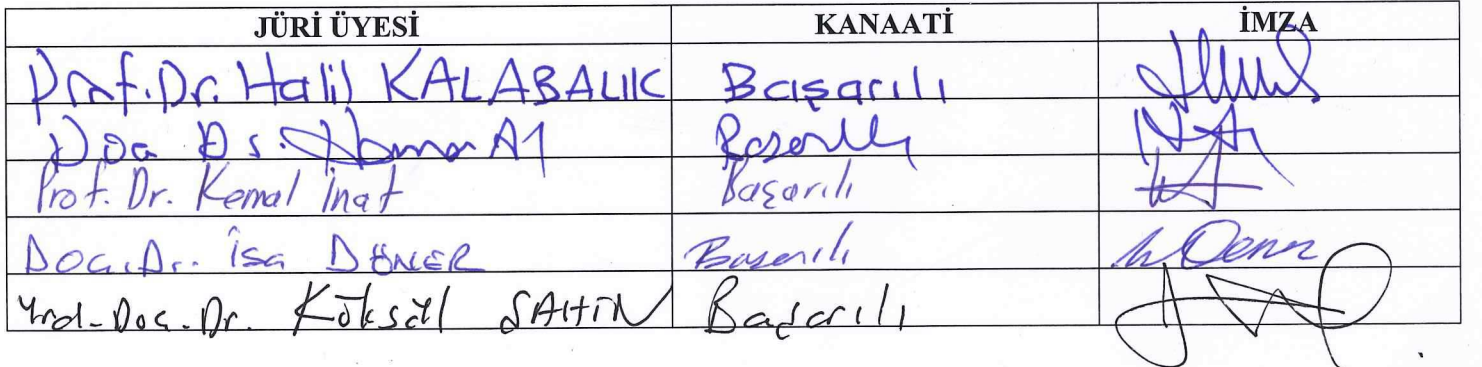 JÜRİ ÜYESİ KANAATİ İMZA
Prof.Dr. Halil KALABALIK Başarılı
Başarılı
Prof. Dr. Kemal İnat Başarılı
Doç.Dr. İsa DÖNER Başarılı
Yrd.Doç.Dr. Köksal ŞAHİN Başarılı